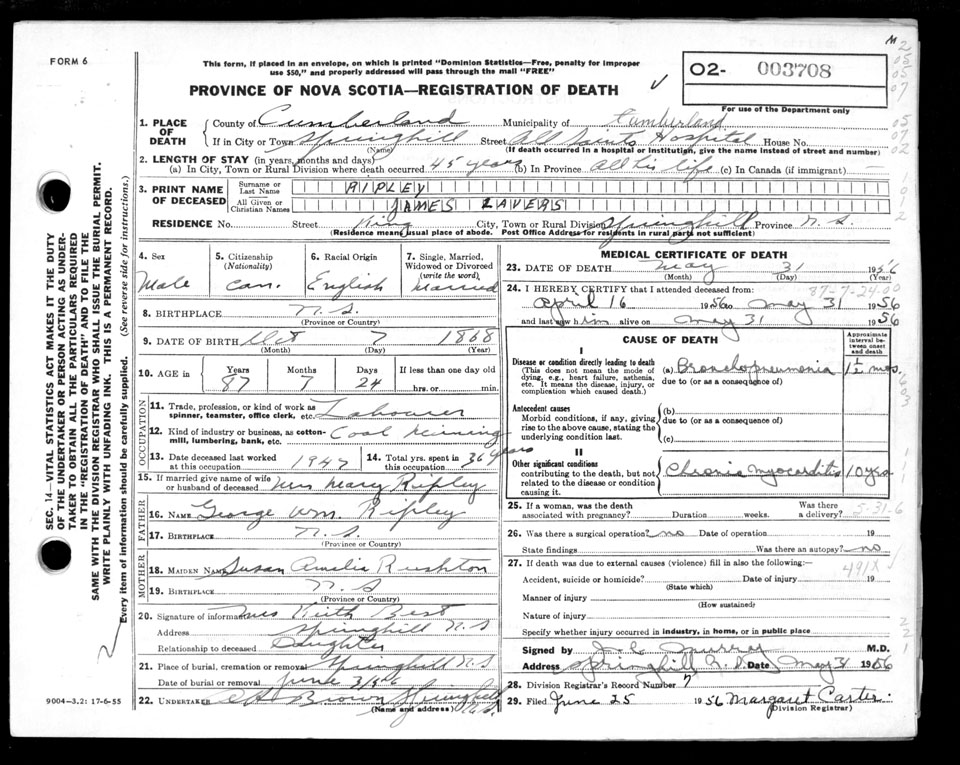 FORM 6
This form, if placed in an envelope, on which is printed "Dominion Statistics—Free, penalty for improper
use $50," and properly addressed will pass through the mail "FREE"
PROVINCE OF NOVA SCOTIA—REGISTRATION OF DEATH
O2- 003708
For use of the Department only
1. PLACE OF DEATH
County of Cumberland Municipality of Cumberland
If in City or Town Springhill Street All Saints Hospital House No.
(Name) (If death occurred in a hospital or institution, give the name instead of street and number)
2. LENGTH OF STAY (in years, months and days)
(a) In City, Town or Rural Division where death occurred 45 years (b) In Province All his life (c) In Canada (if immigrant)
3. PRINT NAME OF DECEASED
Surname or Last Name RIPLEY
All Given or Christian Names JAMES LAVERS
RESIDENCE No. Street King City, Town or Rural Division Springhill Province N.S.
(Residence means usual place of abode. Post Office Address for residents in rural parts not sufficient)
4. Sex Male
5. Citizenship (Nationality) Can.
6. Racial Origin English
7. Single, Married, Widowed or Divorced (write the word) Married
8. BIRTHPLACE N.S.
(Province or Country)
9. DATE OF BIRTH Oct 7 1868
(Month) (Day) (Year)
10. AGE in Years 87 Months 7 Days 24 If less than one day old
hrs. or min.
OCCUPATION
11. Trade, profession, or kind of work as
spinner, teamster, office clerk, etc. Labourer
12. Kind of industry or business, as cotton-
mill, lumbering, bank, etc. Coal Mining
13. Date deceased last worked
at this occupation 1947
14. Total yrs. spent in
this occupation 36 years
15. If married give name of wife
or husband of deceased Mrs Mary Ripley
FATHER
16. NAME George Wm. Ripley
17. BIRTHPLACE N.S.
(Province or Country)
MOTHER
18. MAIDEN NAME Susan Amelia Rushton
19. BIRTHPLACE N.S
(Province or Country)
20. Signature of informant Mrs Keith Best
Address Springhill N.S
Relationship to deceased Daughter
21. Place of burial, cremation or removal Springhill N.S
Date of burial or removal June 3/56
22. UNDERTAKER Brown Springhill N.S.
(Name and address)
9004—3.2: 17-6-55
MEDICAL CERTIFICATE OF DEATH
23. DATE OF DEATH May 31 1956
(Month) (Day)
87-7-24-00
24. I HEREBY CERTIFY that I attended deceased from:
April 16 1956 to May 31 1956
and last saw him alive on May 31 1956
CAUSE OF DEATH
Approximate interval between onset and death
I
Disease or condition directly leading to death
(This does not mean the mode of dying, e.g., heart failure, asthenia, etc. It means the disease, injury, or complication which caused death.)
(a) Bronchopneumonia 1½ mos.
due to (or as a consequence of)
Antecedent causes
Morbid conditions, if any, giving rise to the above cause, stating the underlying condition last.
(b)
due to (or as a consequence of)
(c)
II
Other significant conditions
contributing to the death, but not related to the disease or condition causing it.
Chronic myocarditis 10 yrs.
25. If a woman, was the death
associated with pregnancy? Duration weeks. Was there a delivery?
5-31-6
26. Was there a surgical operation? no Date of operation 19
State findings Was there an autopsy? no
27. If death was due to external causes (violence) fill in also the following:—
491X
Accident, suicide or homicide? Date of injury 19
(State which)
Manner of injury
(How sustained)
Nature of injury
Specify whether injury occurred in industry, in home, or in public place
Signed by Murray M.D.
Address Springhill N.S. Date May 31 1956
28. Division Registrar's Record Number 7
29. Filed June 25 1956 Margaret Carter
(Division Registrar)
SEC. 14—VITAL STATISTICS ACT MAKES IT THE DUTY
OF THE UNDERTAKER OR PERSON ACTING AS UNDER-
TAKER TO OBTAIN ALL THE PARTICULARS REQUIRED
IN THE "REGISTRATION OF DEATH" AND TO FILE THE
SAME WITH THE DIVISION REGISTRAR WHO SHALL ISSUE THE BURIAL PERMIT.
WRITE PLAINLY WITH UNFADING INK. THIS IS A PERMANENT RECORD.
Every item of information should be carefully supplied. (See reverse side for instructions.)